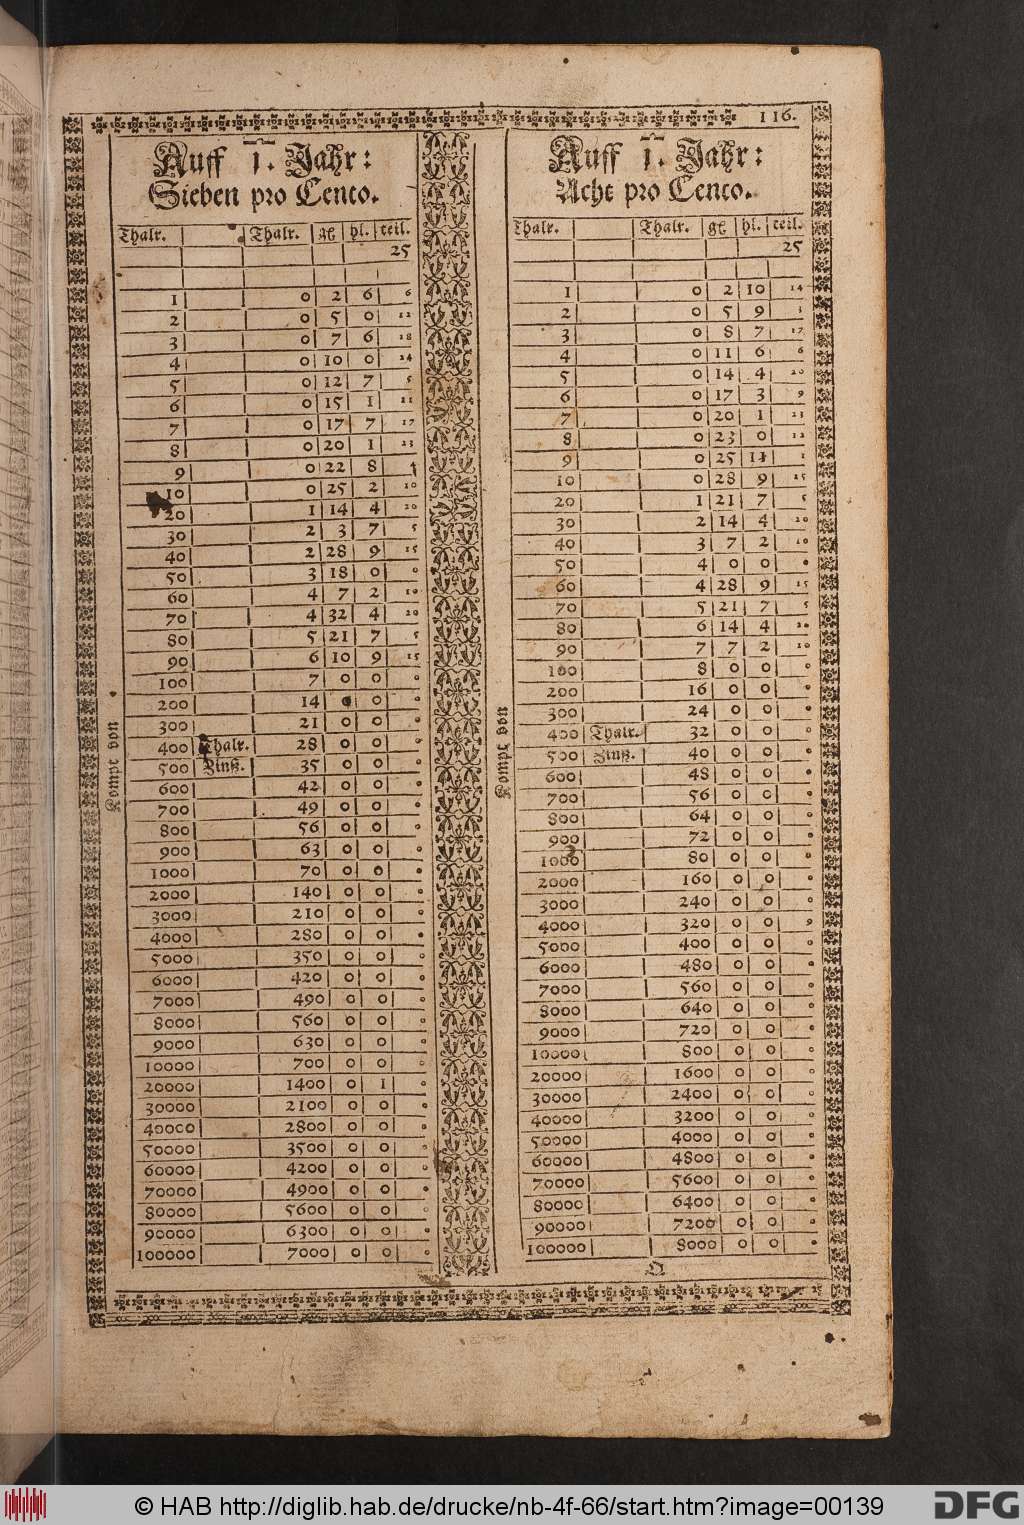 116.
Auff 1. Jahr:
Sieben pro Cento.
Thalr. Thalr. gℓ hl. teil.
25
1 0 2 6 6
2 0 5 0 12
3 0 7 6 18
4 0 10 0 24
5 0 12 7 5
6 0 15 1 11
7 0 17 7 17
8 0 20 1 23
9 0 22 8 4
10 0 25 2 10
20 1 14 4 20
30 2 3 7 5
40 2 28 9 15
50 3 18 0 0
60 4 7 2 10
70 4 32 4 20
80 5 21 7 5
90 6 10 9 15
100 7 0 0 0
200 14 0 0 0
300 21 0 0 0
400 Thalr. 28 0 0 0
500 Zinß. 35 0 0 0
600 42 0 0 0
700 49 0 0 0
800 56 0 0 0
900 63 0 0 0
1000 70 0 0 0
2000 140 0 0 0
3000 210 0 0 0
4000 280 0 0 0
5000 350 0 0 0
6000 420 0 0 0
7000 490 0 0 0
8000 560 0 0 0
9000 630 0 0 0
10000 700 0 0 0
20000 1400 0 1 0
30000 2100 0 0 0
40000 2800 0 0 0
50000 3500 0 0 0
60000 4200 0 0 0
70000 4900 0 0 0
80000 5600 0 0 0
90000 6300 0 0 0
100000 7000 0 0 0
Kompt von
Auff 1. Jahr:
Acht pro Cento.
Thalr. Thalr. gℓ hl. teil.
25
1 0 2 10 14
2 0 5 9 3
3 0 8 7 17
4 0 11 6 6
5 0 14 4 20
6 0 17 3 9
7 0 20 1 23
8 0 23 0 12
9 0 25 11 1
10 0 28 9 15
20 1 21 7 5
30 2 14 4 20
40 3 7 2 10
50 4 0 0 0
60 4 28 9 15
70 5 21 7 5
80 6 14 4 20
90 7 7 2 10
100 8 0 0 0
200 16 0 0 0
300 24 0 0 0
400 Thalr. 32 0 0 0
500 Zinß. 40 0 0 0
600 48 0 0 0
700 56 0 0 0
800 64 0 0 0
900 72 0 0 0
1000 80 0 0 0
2000 160 0 0 0
3000 240 0 0 0
4000 320 0 0 9
5000 400 0 0 0
6000 480 0 0 0
7000 560 0 0 0
8000 640 0 0 0
9000 720 0 0 0
10000 800 0 0 0
20000 1600 0 0 0
30000 2400 0 0 0
40000 3200 0 0 0
50000 4000 0 0 0
60000 4800 0 0 0
70000 5600 0 0 0
80000 6400 0 0 0
90000 7200 0 0 0
100000 8000 0 0 0
Kompt von
© HAB http://diglib.hab.de/drucke/nb-4f-66/start.htm?image=00139
DFG